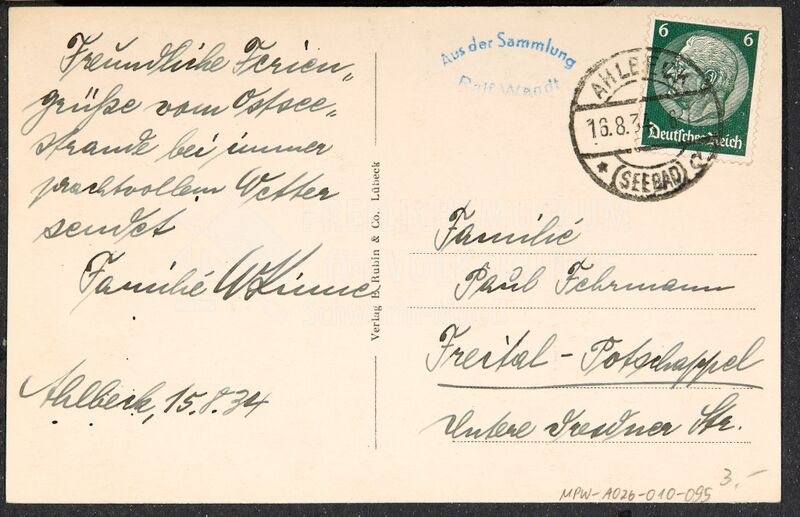 Freundliche Ferien„
grüße vom Ostsee„
strande bei immer
prachtvollem Wetter
sendet
Familie W. Kinne
Ahlbeck, 15.8.34
Verlag E. Rubin & Co. Lübeck
Aus der Sammlung
Ralf Wendt
6 6
Deutsches Reich
16.8.34
(SEEBAD)
Familie
Paul Fehrmann
Freital - Potschappel
Untere Dresdner Str.
3.-
MPW-A026-010-095